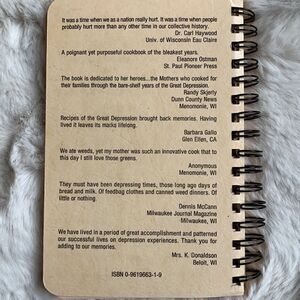 It was a time when we as a nation really hurt. It was a time when people
probably hurt more than any other time in our collective history.
Dr. Carl Haywood
Univ. of Wisconsin Eau Claire
A poignant yet purposeful cookbook of the bleakest years.
Eleanore Ostman
St. Paul Pioneer Press
The book is dedicated to her heroes...the Mothers who cooked for
their families through the bare-shelf years of the Great Depression.
Randy Skjerly
Dunn County News
Menomonie, WI
Recipes of the Great Depression brought back memories. Having
lived it leaves its marks lifelong.
Barbara Gallo
Glen Ellen, CA
We ate weeds, yet my mother was such an innovative cook that to
this day I still love those greens.
Anonymous
Menomonie, WI
They must have been depressing times, those long ago days of
bread and milk. Of feedbag clothes and canned weed dinners. Of
little or nothing.
Dennis McCann
Milwaukee Journal Magazine
Milwaukee, WI
We have lived in a period of great accomplishment and patterned
our successful lives on depression experiences. Thank you for
adding to our memories.
Mrs. K. Donaldson
Beloit, WI
ISBN 0-9619663-1-9